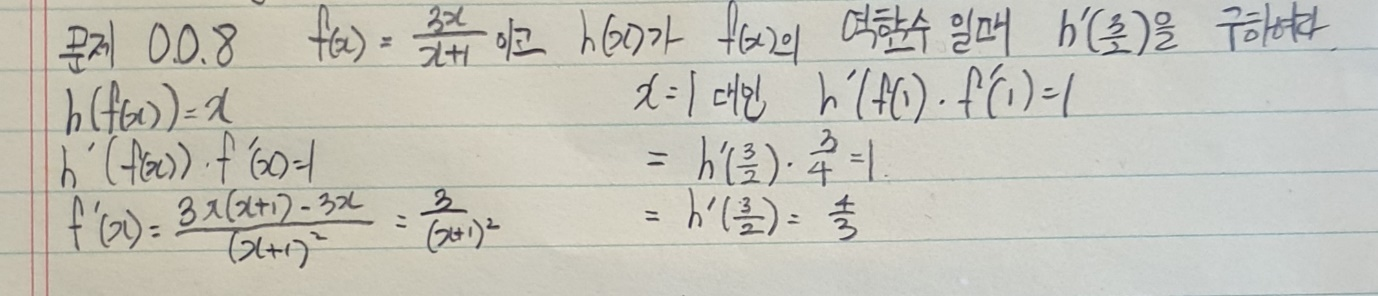 문제 00.8 f(x) = \frac{3x}{x+1} 이고 h(x)가 f(x)의 역함수 일때 h'(\frac{3}{2})을 구하여라.
h(f(x))=x
h'(f(x))·f'(x)=1
f'(x)= \frac{3×(x+1)-3x}{(x+1)^2} = \frac{3}{(x+1)^2}
x=1 대입 h'(f(1)·f'(1)=1
= h'(\frac{3}{2})·\frac{3}{4}=1.
= h'(\frac{3}{2})= \frac{4}{3}